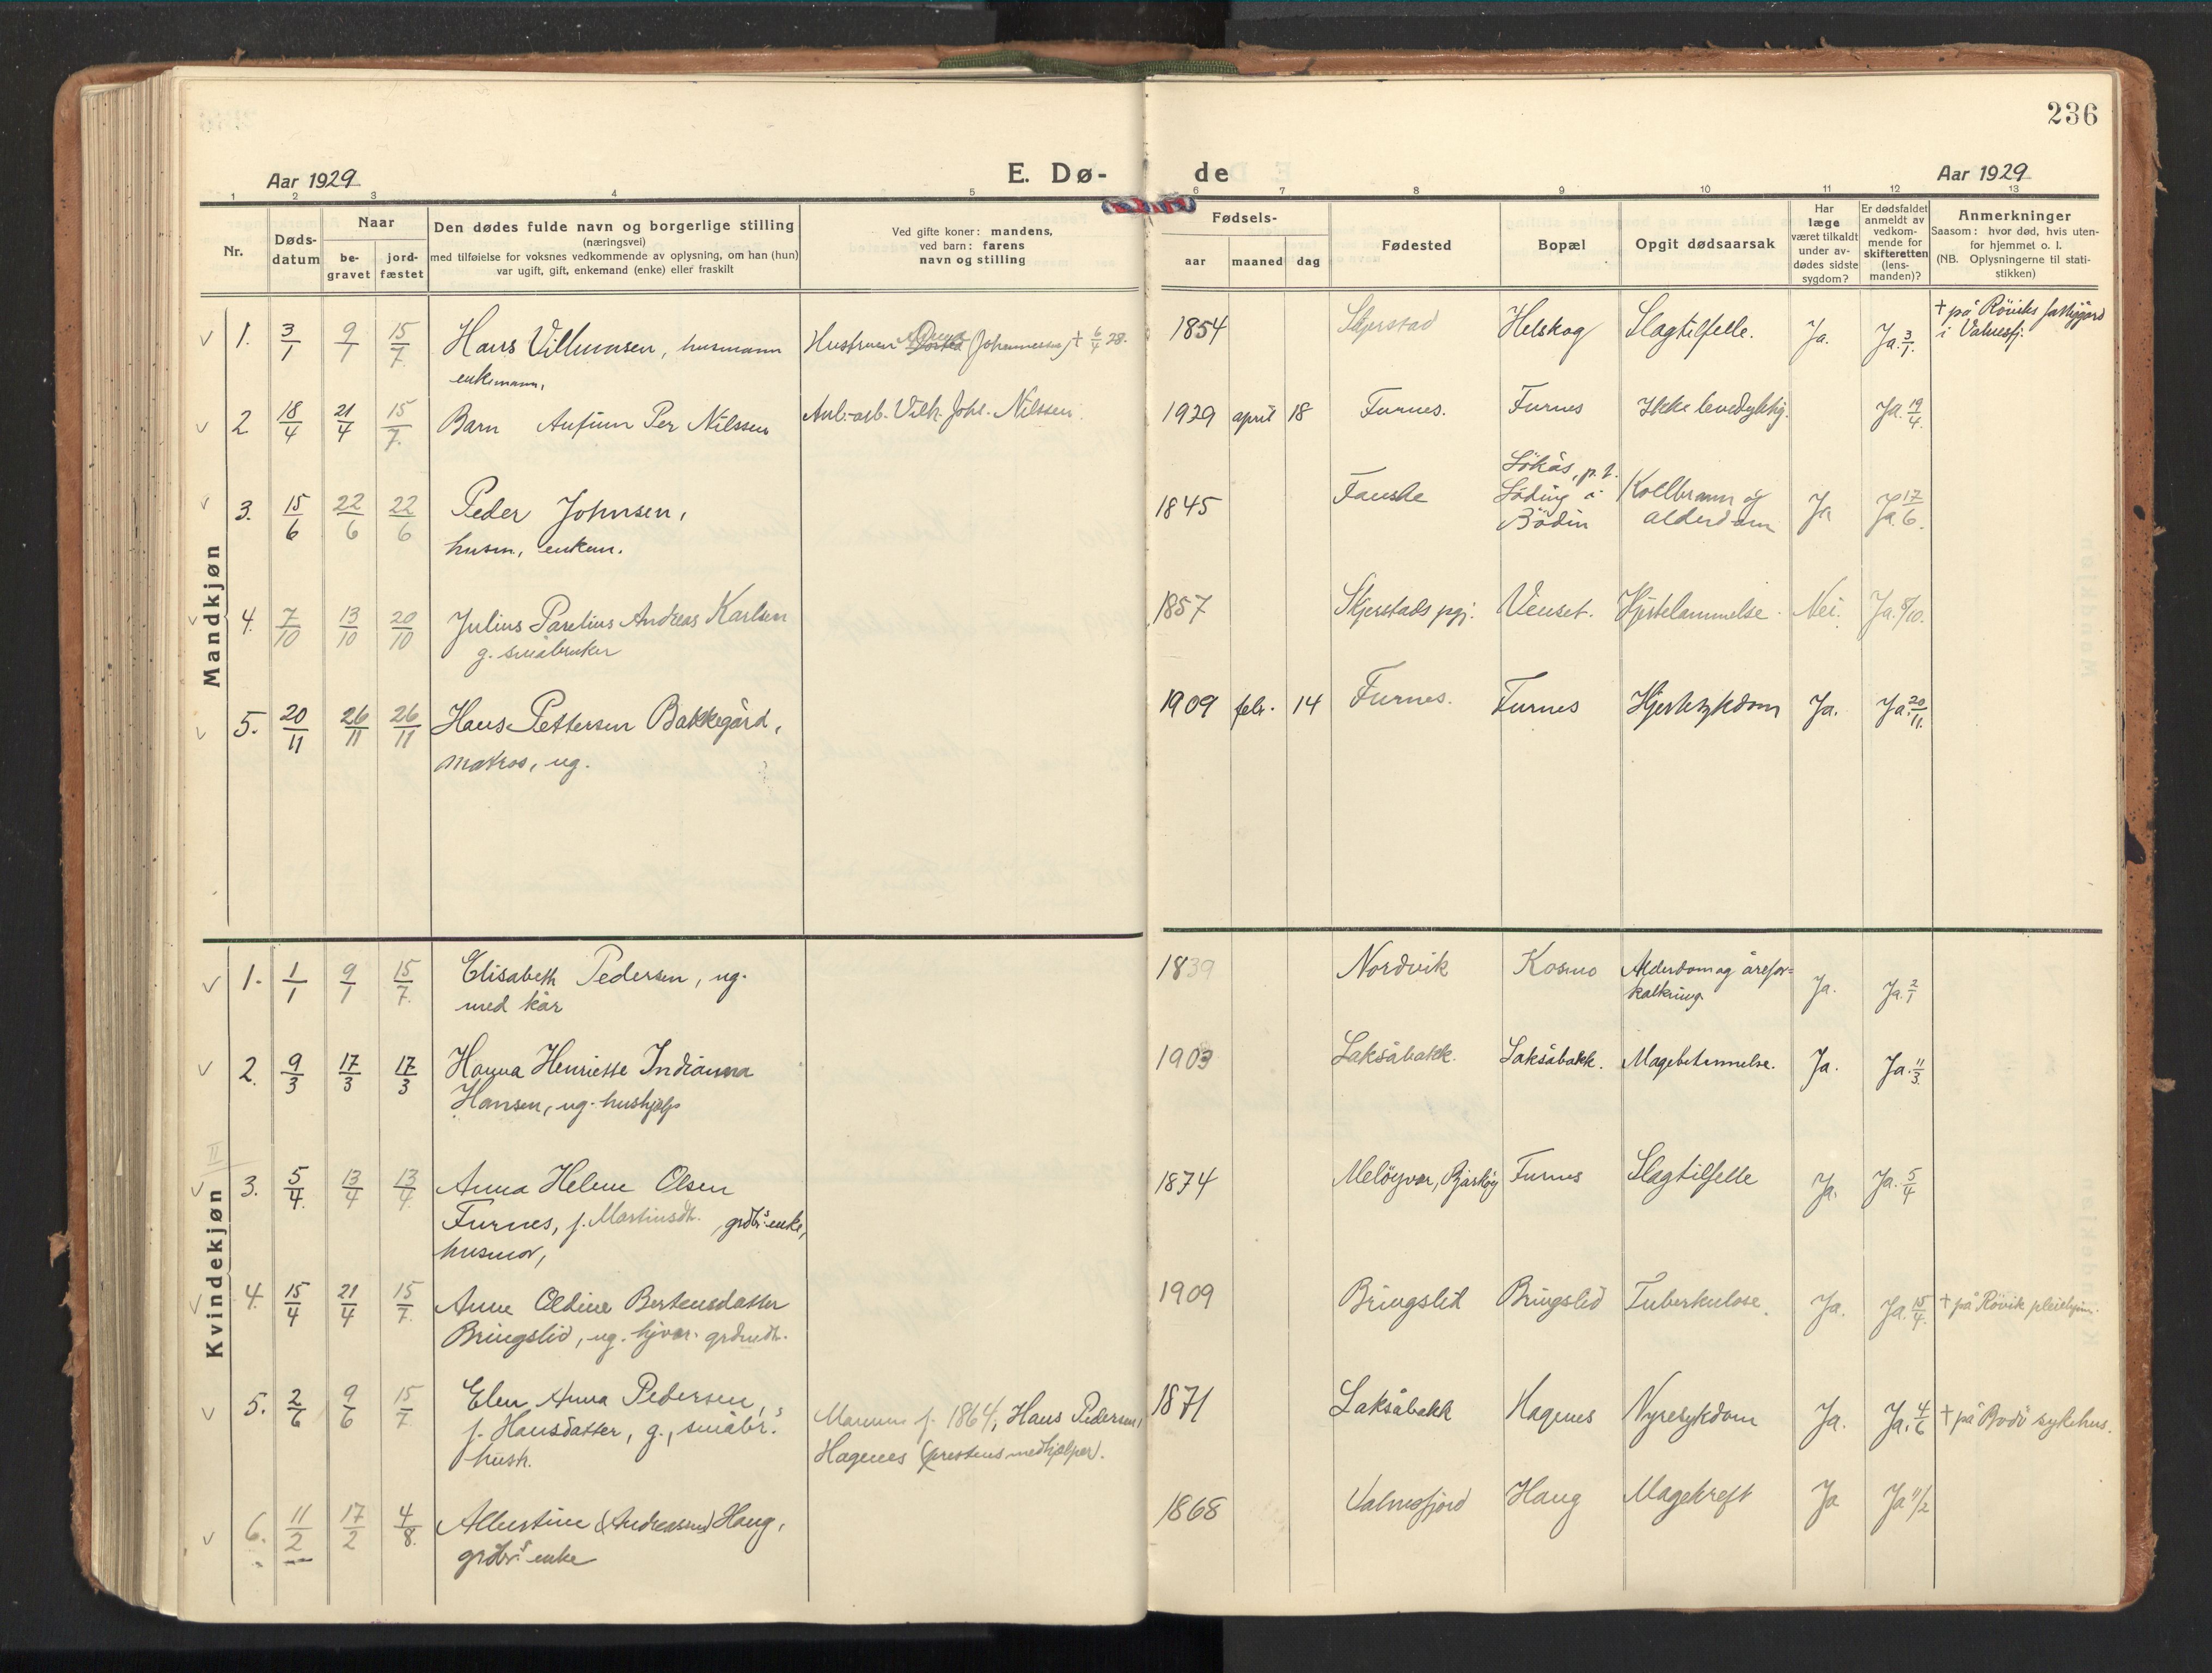 236
Aar 1929
E. Dø-
de
Aar 1929
1 2 3 4 5 6 7 8 9 10 11 12 13
Nr.
Døds-
datum
Naar
be-
gravet
jord-
fæstet
Den dødes fulde navn og borgerlige stilling
(næringsvei)
med tilføielse for voksnes vedkommende av oplysning, om han (hun)
var ugift, gift, enkemand (enke) eller fraskilt
Ved gifte koner: mandens,
ved barn: farens
navn og stilling
Fødsels-
aar maaned dag
Fødested
Bopæl
Opgit dødsaarsak
Har
læge
været tilkaldt
under av-
dødes sidste
sygdom?
Er dødsfaldet
anmeldt av
vedkom-
mende for
skifteretten
(lens-
manden)?
Anmerkninger
Saasom: hvor død, hvis uten-
for hjemmet o. l.
(NB. Oplysningerne til stati-
stikken)
Mandkjøn
1. 3/1 9/1 15/7. Hans Villumsen, husmann Hustruen (Johannessen) † 6/4 28. 1854 Skjerstad Helskog Slagtilfelle. Ja. Ja. 3/1. † på Röviks
enkemann, i Valnesfj.
2 18/4 21/4 15/7. Barn Per Nilssen Anl.-arb. Vilh. Joh. Nilssen. 1929 april 18 Furnes. Furnes Ikke levedyktig. Ja. 19/4.
3. 15/6 22/6 22/6 Peder Johnsen, 1845 Fauske Lökås, p.t. Kollbrann og Ja Ja. 17/6.
husm., enkem. Löding i Bödin alderdom
4. 7/10 13/10 20/10 Julius Parelius Andreas Karlsen 1857 Skjerstads pgj. Venset. Hjertelammelse. Nei. Ja. 8/10.
g. småbruker
5. 20/11 26/11 26/11 Hans Pettersen Bakkegård, 1909 febr. 14 Furnes. Furnes Hjertesykdom Ja. Ja. 20/11.
matros, ug.
Kvindekjøn
1. 1/1 9/1 15/7. Elisabeth Pedersen, ug. 1839 Nordvik Kosmo Alderdom og årefor= Ja. Ja. 2/1
med kår kalkning.
2. 9/3 17/3 17/3 Hanna Henriette Indianna 1903 Laksåbakk. Laksåbakk. Magebetennelse. Ja. Ja. 11/3.
Hansen, ug. hushjelp
II
3. 5/4. 13/4 13/4. Anna Helene Olsen 1874 Meløyvær, Bjarkøy Furnes Slagtilfelle Ja. Ja. 5/4
Furnes, f. Martinsdt., grdbr.s enke,
husmor,
4. 15/4 21/4 15/7. Anne Oldine Bertensdatter 1909 Bringslid Bringslid Tuberkulose. Ja. Ja. 15/4. † på Rövik pleiehjem.
Bringslid, ug. hjvær. grdmdt.
5. 2/6 9/6 15/7. Elen Anna Pedersen, 1871 Laksåbakk Hagenes Nyresykdom Ja. Ja. 4/6 † på Bodö sykehus.
f. Hansdatter, g., småbr.s Mannen f. 1864, Hans Pedersen,
hustr. Hagenes (prestens medhjelper).
6. 11/2 17/2 4/8. Albertine (Andreassen) Haug, 1868 Valnesfjord Haug Magekreft Ja Ja 11/2
grdbr.s enke